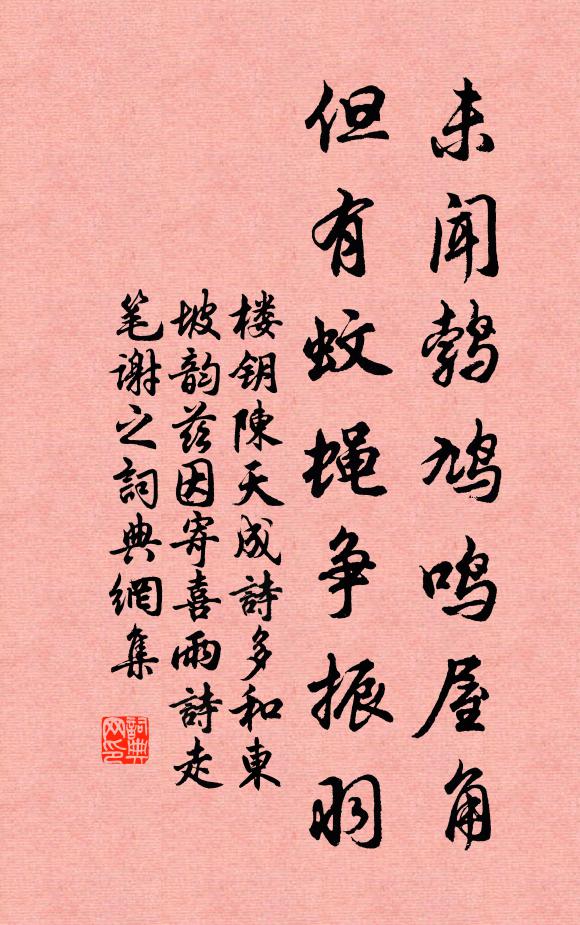 未闻鹁鸠鸣屋角
但有蚊蝇争振羽
楼钥陳天成詩多和東
坡韵兹因寄喜雨詩走
笔谢之詞典網集
詞典
网印